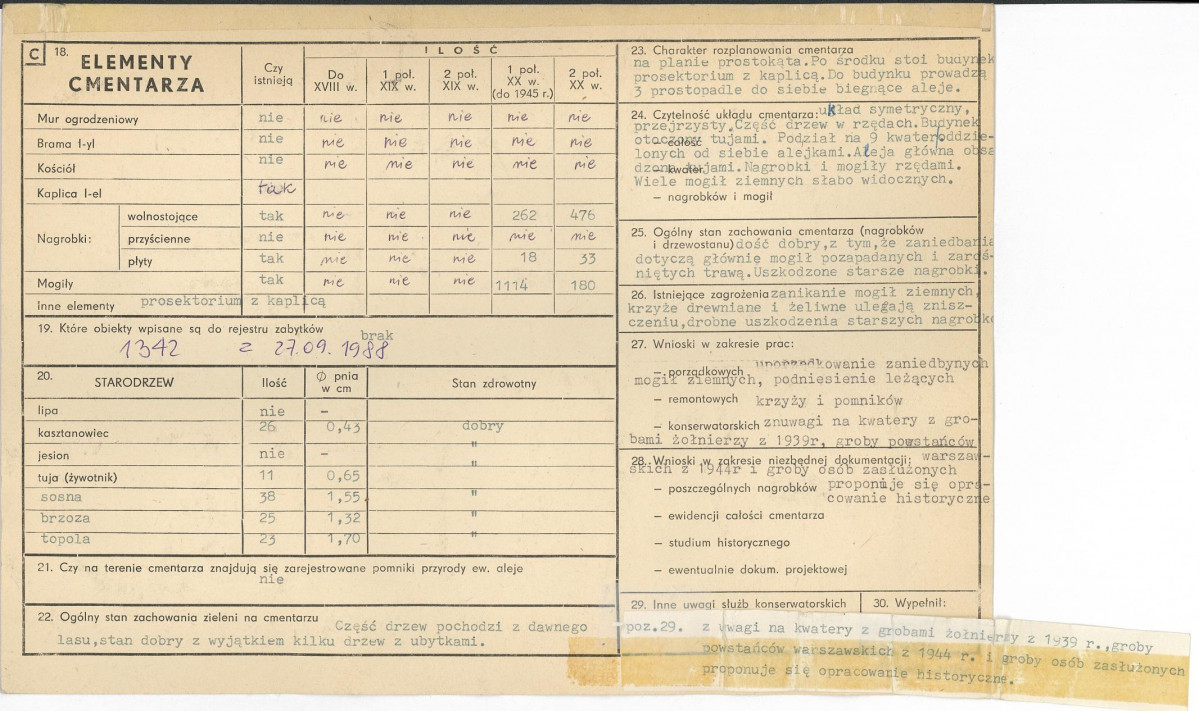 C 18. ELEMENTY CMENTARZA
Czy istnieją
ILOŚĆ
Do XVIII w.
1 poł. XIX w.
2 poł. XIX w.
1 poł. XX w. (do 1945 r.)
2 poł. XX w.
Mur ogrodzeniowy nie nie nie nie nie nie
Brama I-yl nie nie nie nie nie nie
Kościół nie nie nie nie nie nie
Kaplica I-el tak
Nagrobki:
wolnostojące tak nie nie nie 262 476
przyścienne nie nie nie nie nie nie
płyty tak nie nie nie 18 33
Mogiły tak nie nie nie 1114 180
Inne elementy prosektorium z kaplicą
19. Które obiekty wpisane są do rejestru zabytków
brak
1342 z 27.09.1988
20. STARODRZEW Ilość Ø pnia w cm Stan zdrowotny
lipa nie –
kasztanowiec 26 0,43 dobry
jesion nie – "
tuja (żywotnik) 11 0,65
sosna 38 1,55 "
brzoza 25 1,32 "
topola 23 1,70 "
21. Czy na terenie cmentarza znajdują się zarejestrowane pomniki przyrody ew. aleje
nie
22. Ogólny stan zachowania zieleni na cmentarzu Część drzew pochodzi z dawnego
lasu,stan dobry z wyjątkiem kilku drzew z ubytkami.
23. Charakter rozplanowania cmentarza
na planie prostokąta.Po środku stoi budynek
prosektorium z kaplicą.Do budynku prowadzą
3 prostopadle do siebie biegnące aleje.
24. Czytelność układu cmentarza: układ symetryczny,
przejrzysty.Część drzew w rzędach.Budynek
otoczony tujami. Podział na 9 kwater oddzie-
– całość
lonych od siebie alejkami.Aleja główna obsa
dzona tujami.Nagrobki i mogiły rzędami.
– kwater
Wiele mogił ziemnych słabo widocznych.
– nagrobków i mogił
25. Ogólny stan zachowania cmentarza (nagrobków
i drzewostanu) dość dobry,z tym,że zaniedbania
dotyczą głównie mogił pozapadanych i zaroś-
niętych trawą.Uszkodzone starsze nagrobki.
26. Istniejące zagrożenia zanikanie mogił ziemnych,
krzyże drewniane i żeliwne ulegają znisz-
czeniu,drobne uszkodzenia starszych nagrobkó
27. Wnioski w zakresie prac:
– porządkowych uporządkowanie zaniedbynych
mogił ziemnych, podniesienie leżących
– remontowych krzyży i pomników
– konserwatorskich znuwagi na kwatery z gro-
bami żołnierzy z 1939r, groby powstańców
28. Wnioski w zakresie niezbędnej dokumentacji: warszaw-
skich z 1944r i groby osób zasłużonych
– poszczególnych nagrobków proponuje się opra-
cowanie historyczne
– ewidencji całości cmentarza
– studium historycznego
– ewentualnie dokum. projektowej
29. Inne uwagi służb konserwatorskich
30. Wypełnił:
poz.29. z uwagi na kwatery z grobami żołnierzy z 1939 r.,groby
powstańców warszawskich z 1944 r. i groby osób zasłużonych
proponuje się opracowanie historyczne.